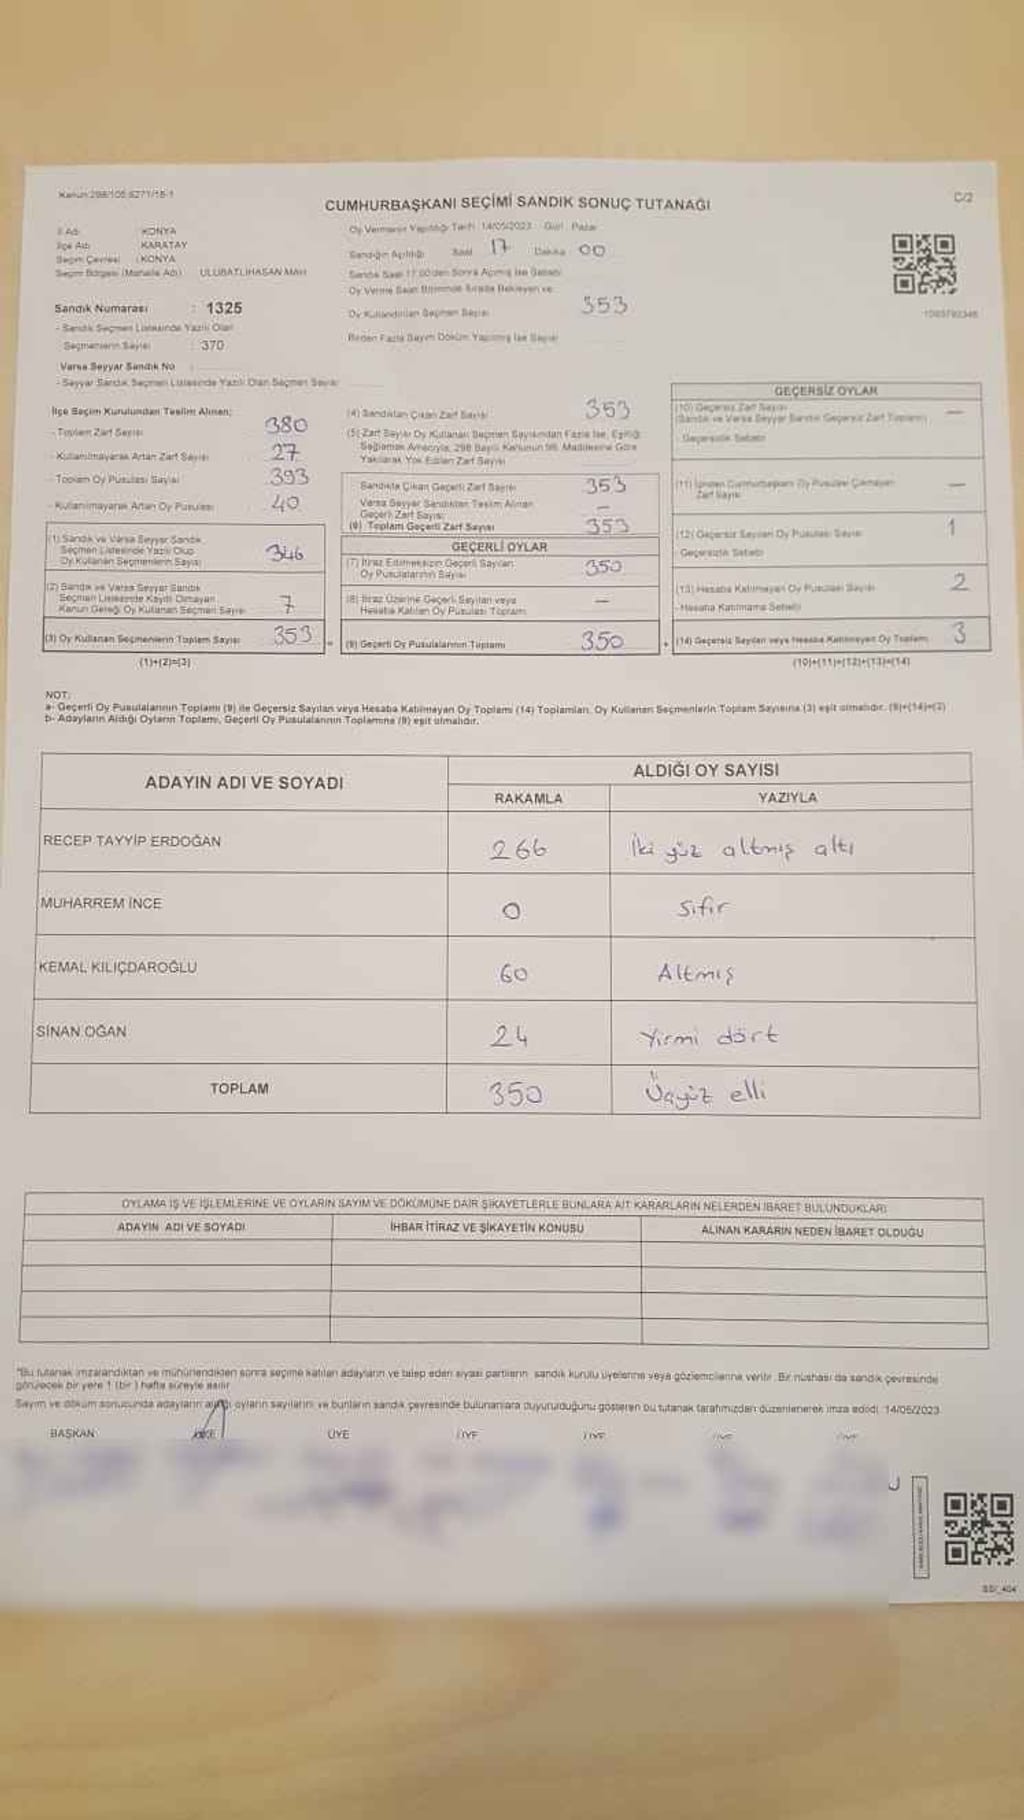 Kanun:298/105 6271/18-1
C/2
CUMHURBAŞKANI SEÇİMİ SANDIK SONUÇ TUTANAĞI
İl Adı KONYA
İlçe Adı KARATAY
Seçim Çevresi KONYA
Seçim Bölgesi (Mahalle Adı) ULUBATLIHASAN MAH
Sandık Numarası : 1325
- Sandık Seçmen Listesinde Yazılı Olan
Seçmenlerin Sayısı : 370
Varsa Seyyar Sandık No
- Seyyar Sandık Seçmen Listesinde Yazılı Olan Seçmen Sayısı
Oy Vermenin Yapıldığı Tarih 14/05/2023 Gün Pazar
Sandığın Açıldığı Saat 17 Dakika 00
Sandık Saat 17:00'den Sonra Açılmış İse Sebebi
Oy Verme Saati Bitiminde Sırada Bekleyen ve
Oy Kullandırılan Seçmen Sayısı 353
Birden Fazla Sayım Döküm Yapılmış İse Sayısı
İlçe Seçim Kurulundan Teslim Alınan;
- Toplam Zarf Sayısı 380
- Kullanılmayarak Artan Zarf Sayısı 27
- Toplam Oy Pusulası Sayısı 393
- Kullanılmayarak Artan Oy Pusulası 40
(1) Sandık ve Varsa Seyyar Sandık
Seçmen Listesinde Yazılı Olup
Oy Kullanan Seçmenlerin Sayısı 346
(2) Sandık ve Varsa Seyyar Sandık
Seçmen Listesinde Kayıtlı Olmayan
Kanun Gereği Oy Kullanan Seçmen Sayısı 7
(3) Oy Kullanan Seçmenlerin Toplam Sayısı 353
(1)+(2)=(3)
(4) Sandıktan Çıkan Zarf Sayısı 353
(5) Zarf Sayısı Oy Kullanan Seçmen Sayısından Fazla İse, Eşitliği
Sağlamak Amacıyla, 298 Sayılı Kanunun 98. Maddesine Göre
Yakılarak Yok Edilen Zarf Sayısı
Sandıkta Çıkan Geçerli Zarf Sayısı 353
Varsa Seyyar Sandıktan Teslim Alınan
Geçerli Zarf Sayısı —
(6) Toplam Geçerli Zarf Sayısı 353
GEÇERLİ OYLAR
(7) İtiraz Edilmeksizin Geçerli Sayılan
Oy Pusulalarının Sayısı 350
(8) İtiraz Üzerine Geçerli Sayılan veya
Hesaba Katılan Oy Pusulası Toplamı —
(9) Geçerli Oy Pusulalarının Toplamı 350
GEÇERSİZ OYLAR
(10) Geçersiz Zarf Sayısı
(Sandık ve Varsa Seyyar Sandık Geçersiz Zarf Toplamı) —
- Geçersizlik Sebebi
(11) İçinden Cumhurbaşkanı Oy Pusulası Çıkmayan
Zarf Sayısı —
(12) Geçersiz Sayılan Oy Pusulası Sayısı 1
Geçersizlik Sebebi
(13) Hesaba Katılmayan Oy Pusulası Sayısı 2
- Hesaba Katılmama Sebebi
(14) Geçersiz Sayılan veya Hesaba Katılmayan Oy Toplamı 3
(10)+(11)+(12)+(13)=(14)
NOT:
a- Geçerli Oy Pusulalarının Toplamı (9) ile Geçersiz Sayılan veya Hesaba Katılmayan Oy Toplamı (14) Toplamları, Oy Kullanan Seçmenlerin Toplam Sayısına (3) eşit olmalıdır. (9)+(14)=(3)
b- Adayların Aldığı Oyların Toplamı, Geçerli Oy Pusulalarının Toplamına (9) eşit olmalıdır.
ADAYIN ADI VE SOYADI
ALDIĞI OY SAYISI
RAKAMLA YAZIYLA
RECEP TAYYİP ERDOĞAN 266 İki yüz altmış altı
MUHARREM İNCE 0 Sıfır
KEMAL KILIÇDAROĞLU 60 Altmış
SİNAN OĞAN 24 Yirmi dört
TOPLAM 350 Üçyüz elli
OYLAMA İŞ VE İŞLEMLERİNE VE OYLARIN SAYIM VE DÖKÜMÜNE DAİR ŞİKAYETLERLE BUNLARA AİT KARARLARIN NELERDEN İBARET BULUNDUKLARI
ADAYIN ADI VE SOYADI İHBAR İTİRAZ VE ŞİKAYETİN KONUSU ALINAN KARARIN NEDEN İBARET OLDUĞU
*Bu tutanak imzalandıktan ve mühürlendikten sonra seçime katılan adayların ve talep eden siyasi partilerin sandık kurulu üyelerine veya gözlemcilerine verilir. Bir nüshası da sandık çevresinde
görülecek bir yere 1 (bir) hafta süreyle asılır.
Sayım ve döküm sonucunda adayların aldığı oyların sayılarını ve bunların sandık çevresinde bulunanlara duyurulduğunu gösteren bu tutanak tarafımızdan düzenlenerek imza edildi. 14/05/2023
BAŞKAN ÜYE ÜYE ÜYE ÜYE ÜYE